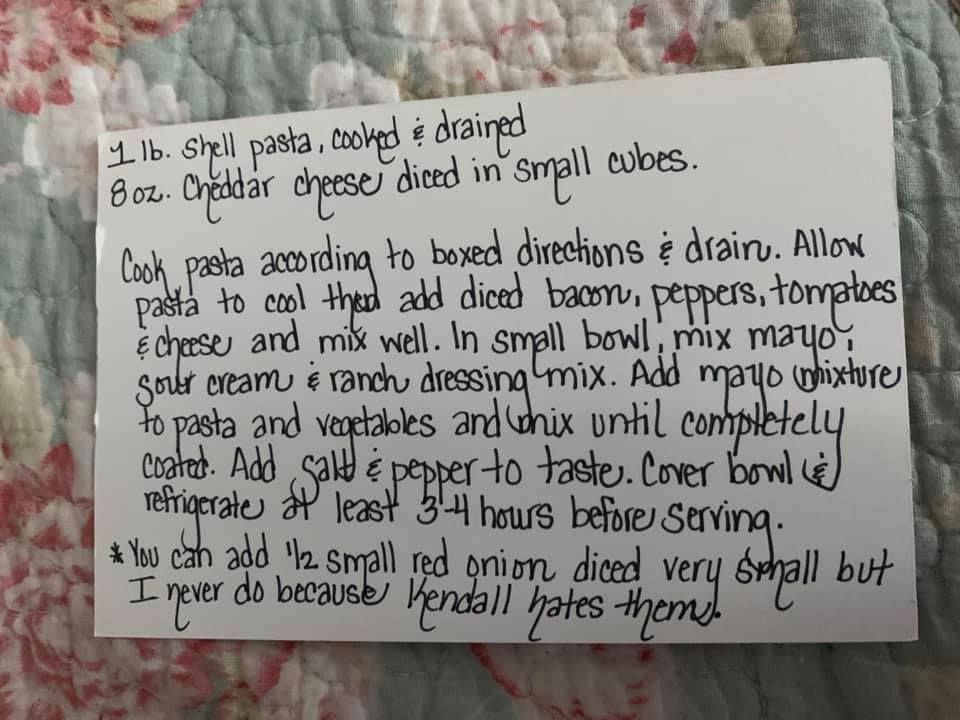 1 lb. Shell pasta, cooked & drained
8 oz. Cheddar cheese diced in small cubes.
Cook pasta according to boxed directions & drain. Allow
pasta to cool then add diced bacon, peppers, tomatoes
& cheese and mix well. In small bowl, mix mayo,
sour cream & ranch dressing mix. Add mayo mixture
to pasta and vegetables and mix until completely
coated. Add salt & pepper to taste. Cover bowl &
refrigerate at least 3-4 hours before serving.
* You can add 1/2 small red onion diced very small but
I never do because Kendall hates them.